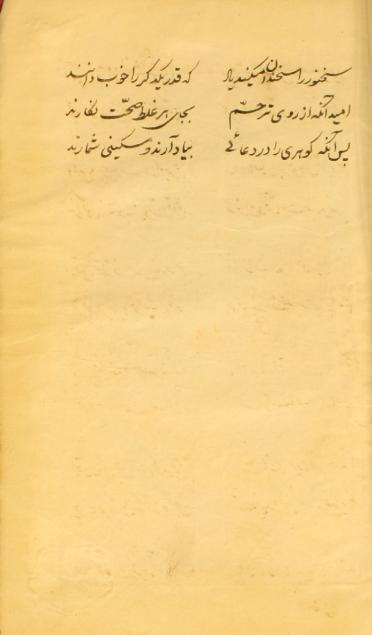 سخنور را سخندان میکنید یاد که قدر یکدیگر را خوب دانند
امید آنکه از روی ترحّم بجای هر غلط صحّت نگارند
پس آنکه گوهری را در دعائے بیاد آرند و مسکینی شمارند